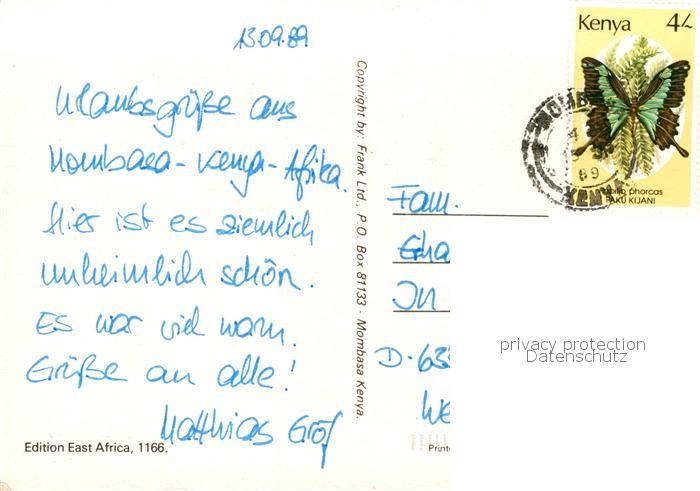 13.09.89
Urlaubsgrüße aus
Mombasa-Kenya-Afrika.
Hier ist es ziemlich
unheimlich schön.
Es war viel warm.
Grüße an alle!
Matthias Gröf
Edition East Africa, 1166.
Copyright by: Frank Ltd., P.O. Box 81133 - Mombasa Kenya.
Kenya 4/-
Papilio phorcas
PAKU KIJANI
89
KENYA
Fam.
In
D-63
We
Printe
privacy protection
Datenschutz